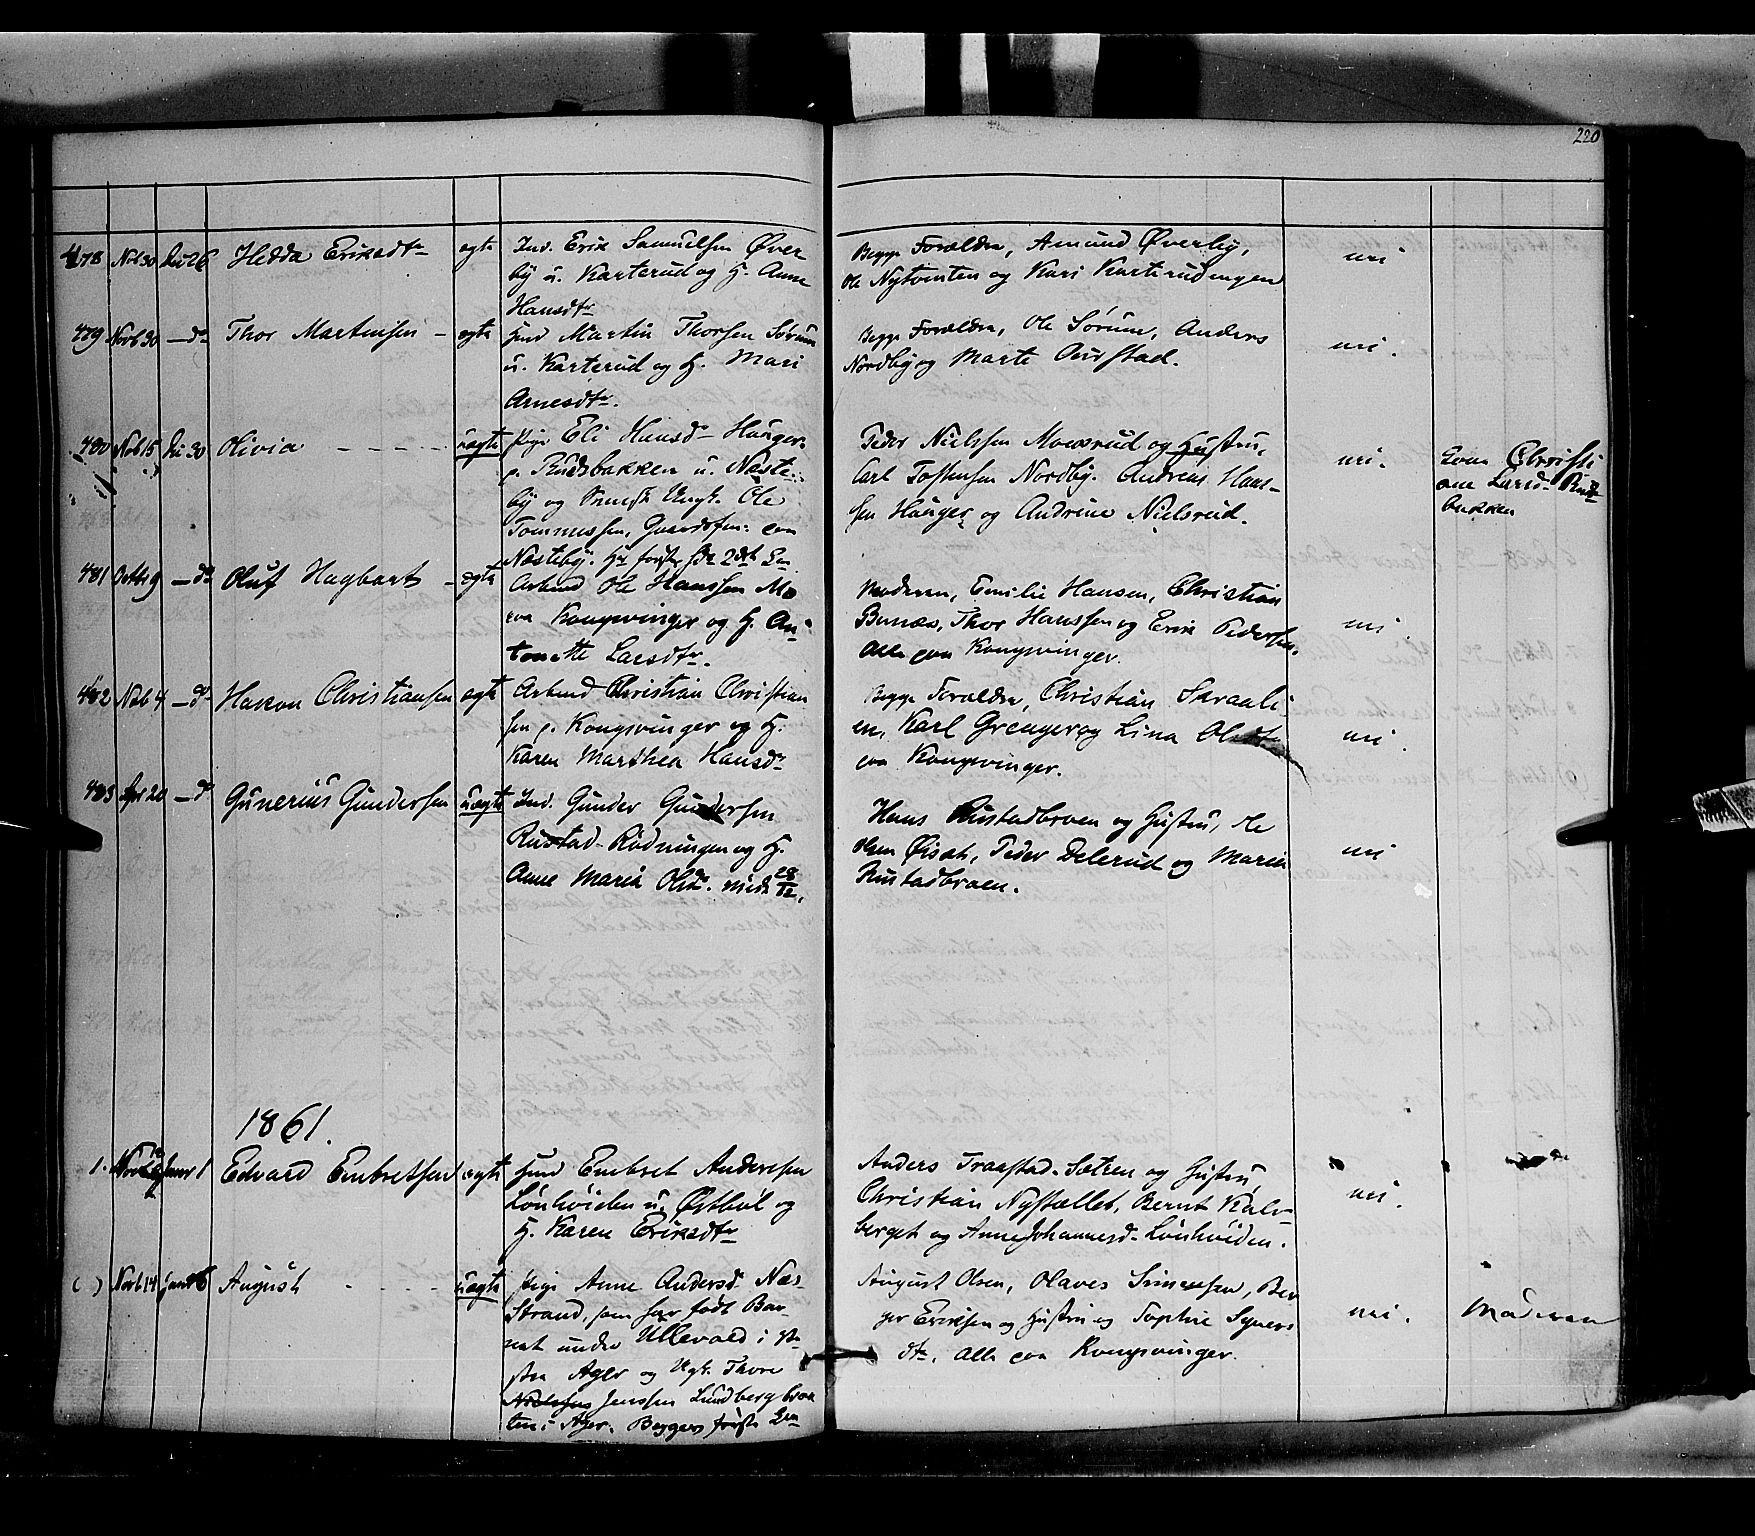 220
478 Nvb 30 Dec 26 Hedda Eriksdtr ægte Ind. Erik Samuelsen Øver
by u. Karterud og H. Anne
Hansdtr
Begge Forældre, Amund Øverby,
Ole Nytomten og Kari Karterudengen
uri
479 Novb 30 — do Thor Martinsen — ægte Husmd Martin Thorsen Sørum
u. Karterud og H. Mari
Arnesdtr.
Begge Forældre, Ole Sørum, Anders
Nordby og Marte Aurstad.
uri.
480 Nvb 15 Dec 30 Olivia - - - - uægte Pige Eli Hansd- Hauger
p. Rudsbakken u. Næste
by og Ungk. Ole
Tommessen, Gaardsfm: paa
Næsteby. Hs første hds 2det Lm
Peder Nielssen Moesrud og Hustru,
Carl Tostensen Nordby. Andreas Han-
sen Hauger og Andrine Nielsrud.
uri.
Christi
ane Larsd- Rud
bakken
481 Octb 9 — do Oluf Hagbart — ægte Arbmd Ole Hanssen Mo
paa Kongsvinger og H. An-
tonette Larsdtr.
Moderen, Emilie Hansen, Christian
Bunæs, Thor Hanssen og Erik Pedersen.
alle paa Kongsvinger.
uri.
482 Nvb 4 — do Hakon Christiansen ægte Arbmd Christian Christian
sen p. Kongsvinger og H.
Karen Marthea Hansdr
Begge Forældre, Christian Skraali
en, Karl Grenger og Lina Olsdtr
paa Kongsvinger.
uri.
483 Apr 20 — do Gunerius Gundersen uægte Ind. Gunder Gundersen
Rustad-Rødningen og H.
Anne Maria Olsdr. viede 28/12.
Hans Rustadbroen og Hustru, Ole
Olsen Øiseth, Peder Delerud og Maria
Rustadbroen.
uri
1861.
1. Janr 1 Edvard Embretsen ægte Husmd Embret Andersen
Lønhøiden u. Østbøl og
H. Karen Eriksdtr
Anders Traastad-Sætren og Hustru,
Christian Nystallet, Bernt Kalv-
berget og Anne Johannesd- Lønhøiden.
uri.
( ) Novb 14 Janr 6 August - - - - uægte Pige Anne Andersd. Næs-
Strand, som har født Bar-
net under Ullevold i Ve-
stre Ager og Ugk. Thore
Jenssen Lundberg braa
ten i Ager. Begges første Lm
August Olsen, Olaves Simensen, Bir
ger Eriksen og Hustru og Sophie Syvers
dtr, alle paa Kongsvinger.
uri.
Moderen